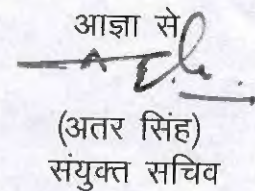 आज्ञा से
(अतर सिंह)
संयुक्त सचिव